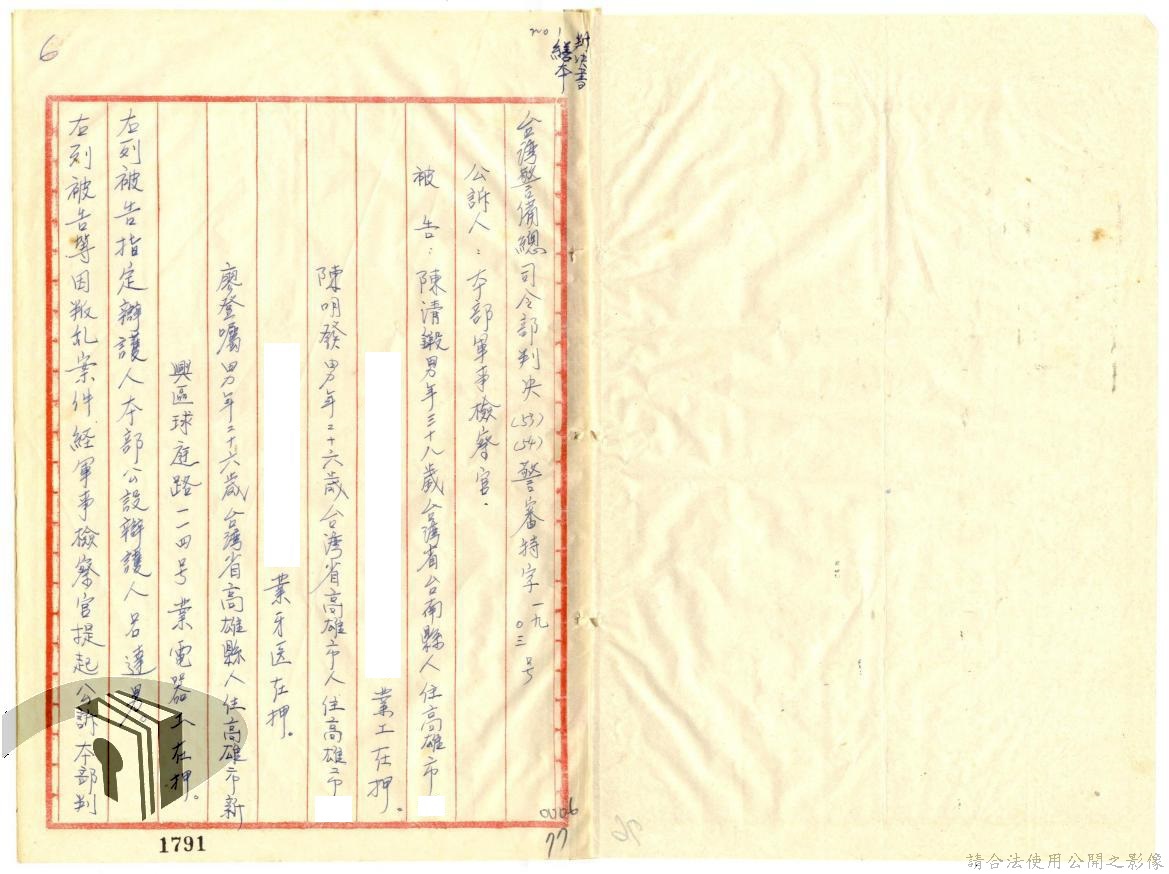 6
no 1
判決書
繕本
台湾警备總司令部判决(53)(54)警審特字一九〇三号
公訴人:本部軍事檢察官.
被 告:陳清鍛男年三十八歲台湾省台南縣人住高雄市
業工在押。
陳明發男年二十六歲台湾省高雄市人住高雄市
業牙医在押。
廖登囑男年二十六歲台湾省高雄縣人住高雄市新
興區球庭路一一四号業電器工在押。
右列被告指定辯護人本部公設辯護人呂達男。
右列被告等因叛乱案件経軍事檢察官提起公訴本部判
0006
77
1791
76
請合法使用公開之影像